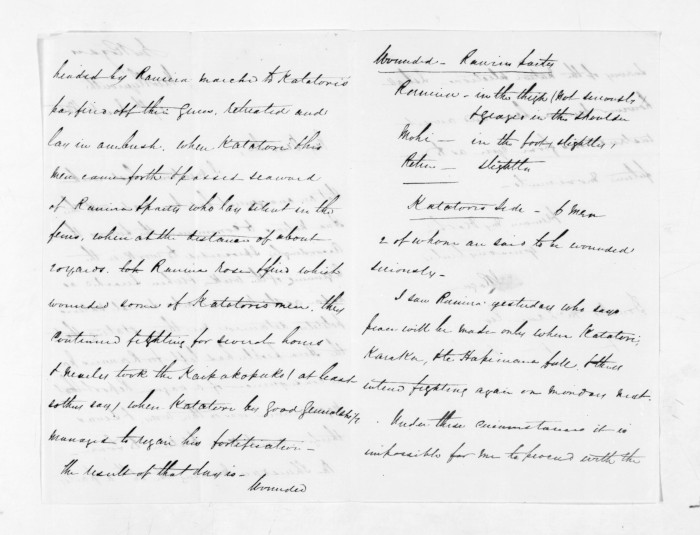 headed by Rawiri marched to Katatori's
pa, fired off their Guns, retreated and
lay in ambush. When Katatori & his
men came forth & passed seaward
of Rawiri & party who lay silent in the
fern, when at the distance of about
20 yards. Rawiri rose & fired which
wounded some of Katatoris men. they
continued fighting for several hours
& nearly took the Kaipakopuko (at least
so they say) when Katatori by good Generalship
manages to regain his fortification -
The result of that day is -
Wounded
Wounded - Rawiris party
- in the thigh (not seriously
& grazed in the shoulder
Mohi - in the foot, slightly,
- slightly
Katatoris side - 6 men
2 of whom are said to be wounded
seriously -
I saw Rawiri yesterday who says
peace will be made only when Katatori,
Karaka, & Te Hapimana fall & they
intend fighting again on Monday next.
Under these circumstances it is
impossible for me to proceed with the